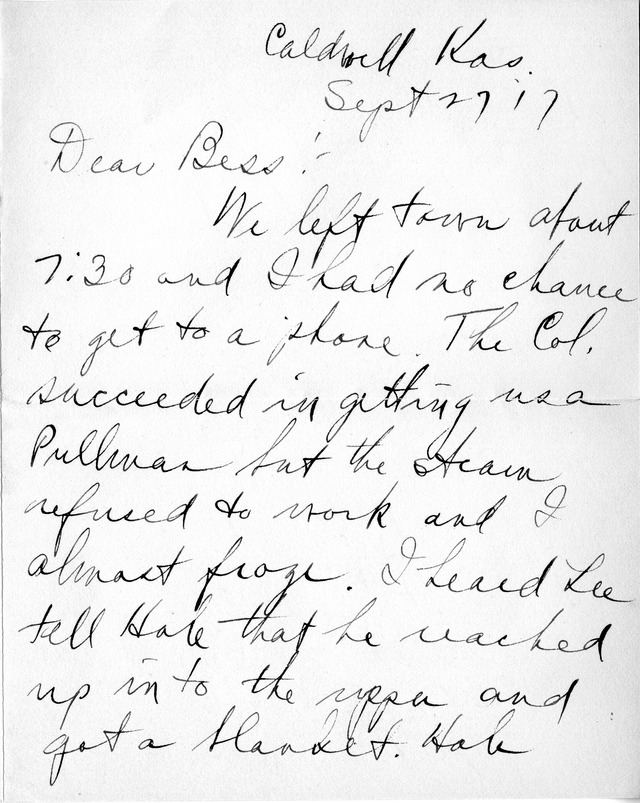 Caldwell Kas.
Sept 27 '17
Dear Bess:-
We left town about
7:30 and I had no chance
to get to a phone. The Col.
succeeded in getting us a
Pullman but the steam
refused to work and I
almost froze. I heard Lee
tell Hale that he reached
up into the upper and
got a blanket. Hale